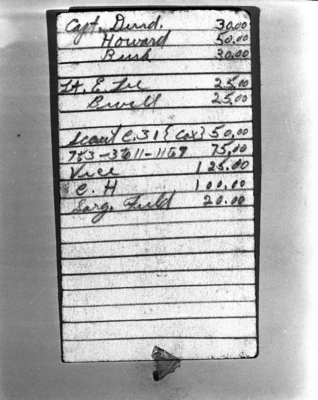 Capt. Dund. 30.00
Howard 50.00
Bush 30.00
Lt. E. Lee 25.00
Ewell 25.00
Scout C. 31 (Cox) 50.00
7 3-3 to 11-11 69 75.00
Vice 125.00
C. H 100.00
Sarg. Field 20.00